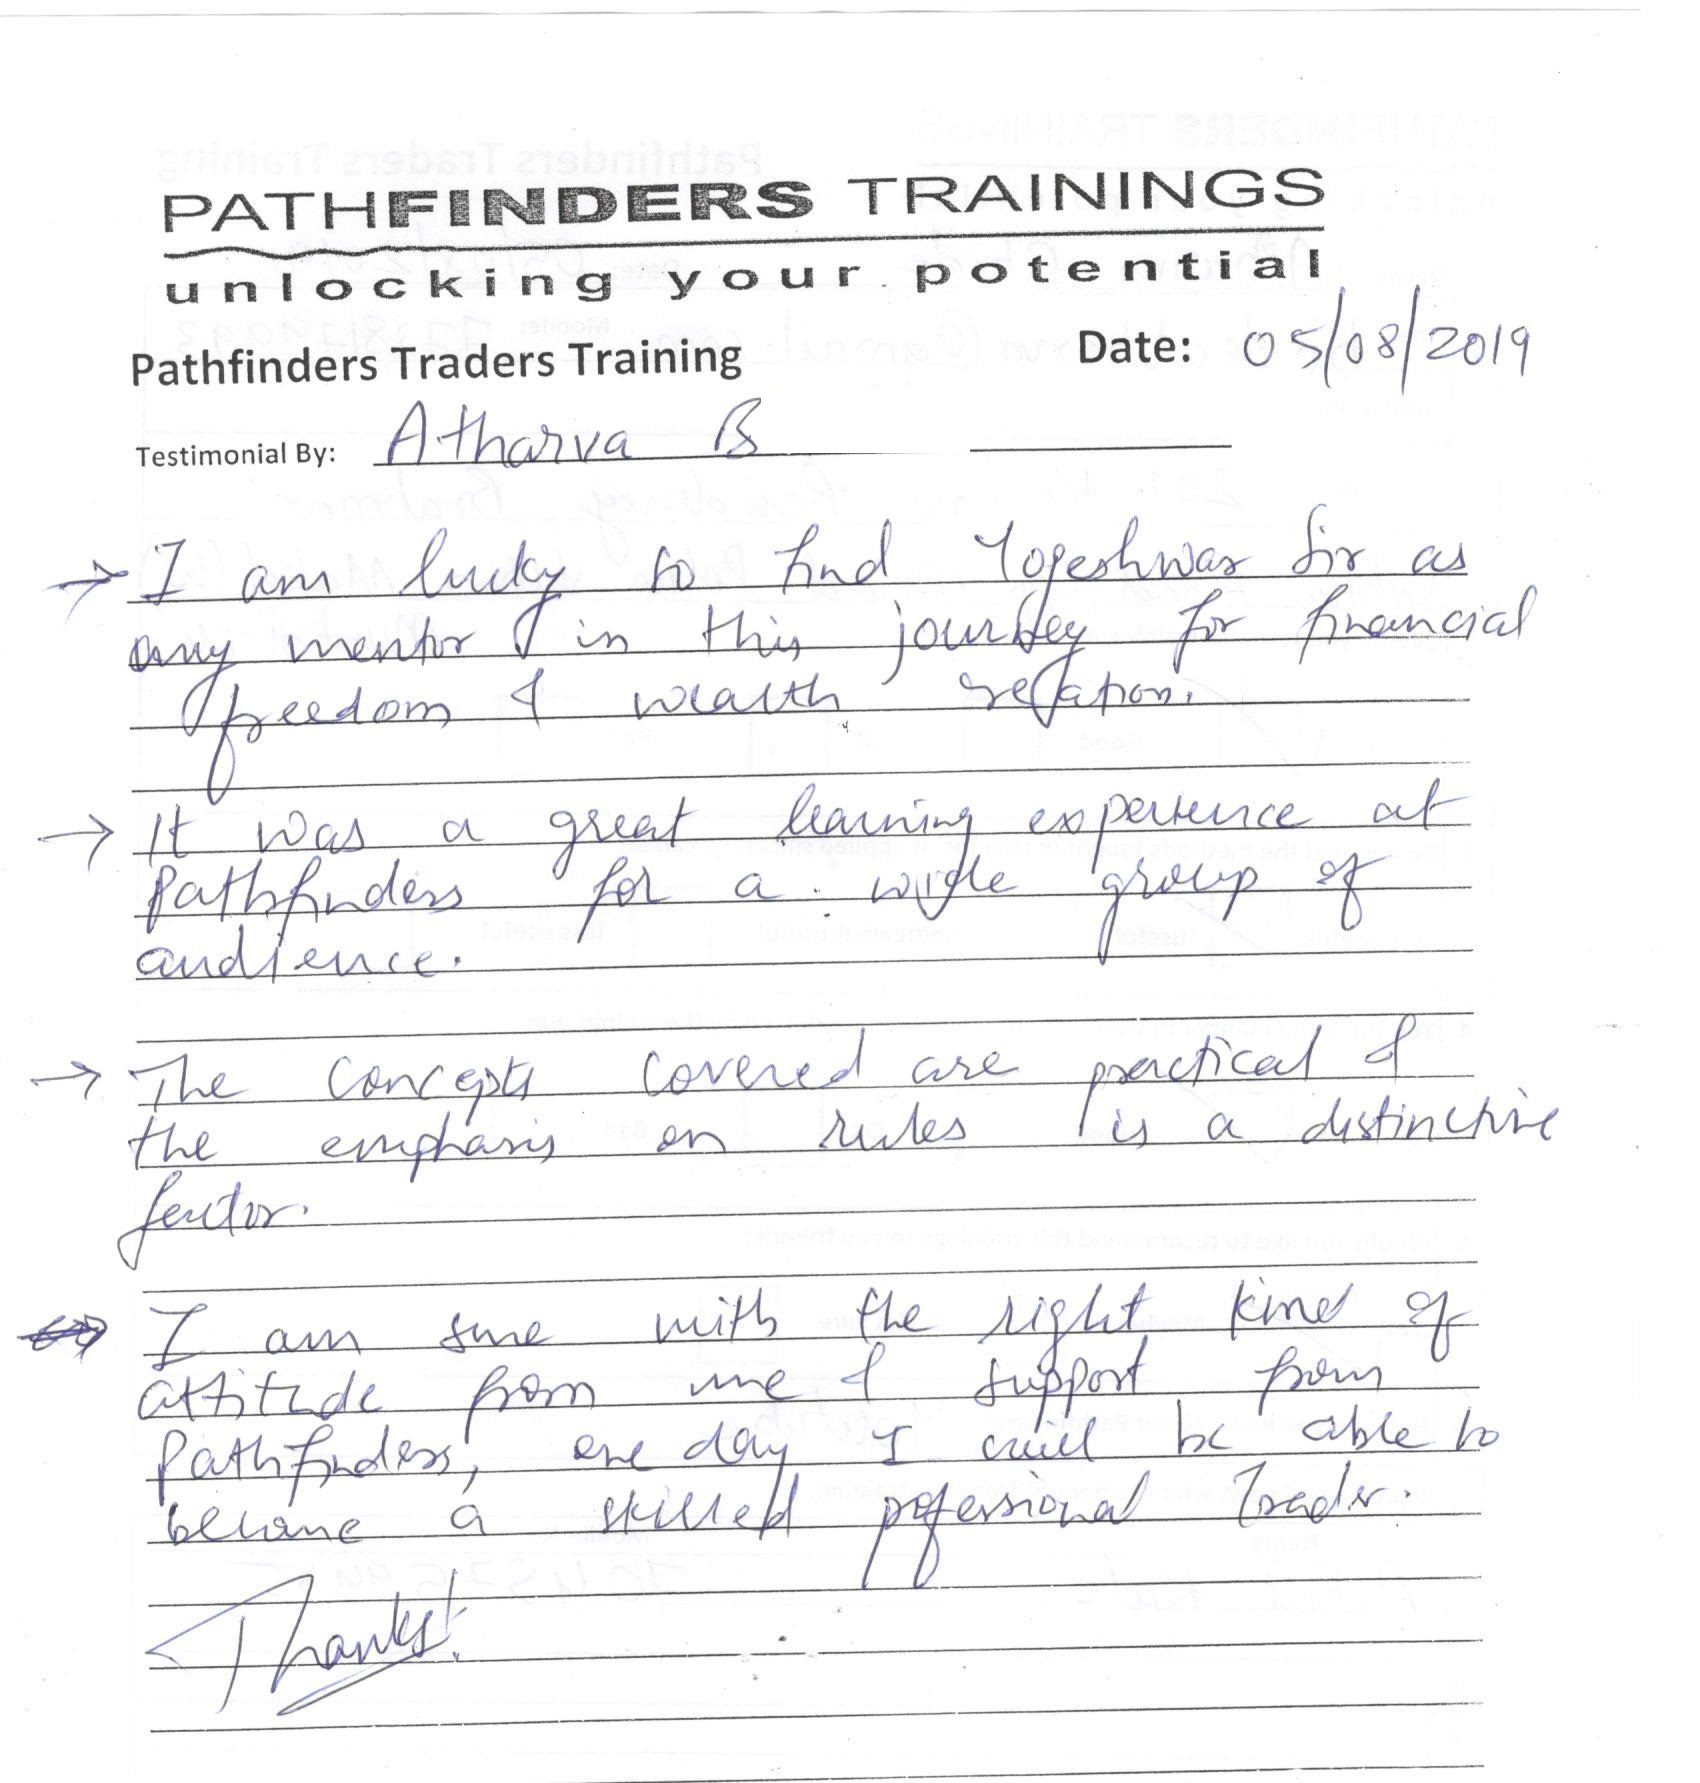 PATHFINDERS TRAININGS
unlocking your potential
Pathfinders Traders Training Date: 05/08/2019
Testimonial By: Atharva B
→ I am lucky to find Yogeshwar Sir as
my mentor in this journey for financial
freedom & wealth
→ It was a great learning experience at
Pathfinders for a wide group of
audience.
→ The concepts covered are practical &
the emphasis on rules is a distinctive
factor.
→ I am sure with the right kind of
attitude from me & support from
Pathfinders, one day I will be able to
become a skilled pofessional Trader.
Thanks!